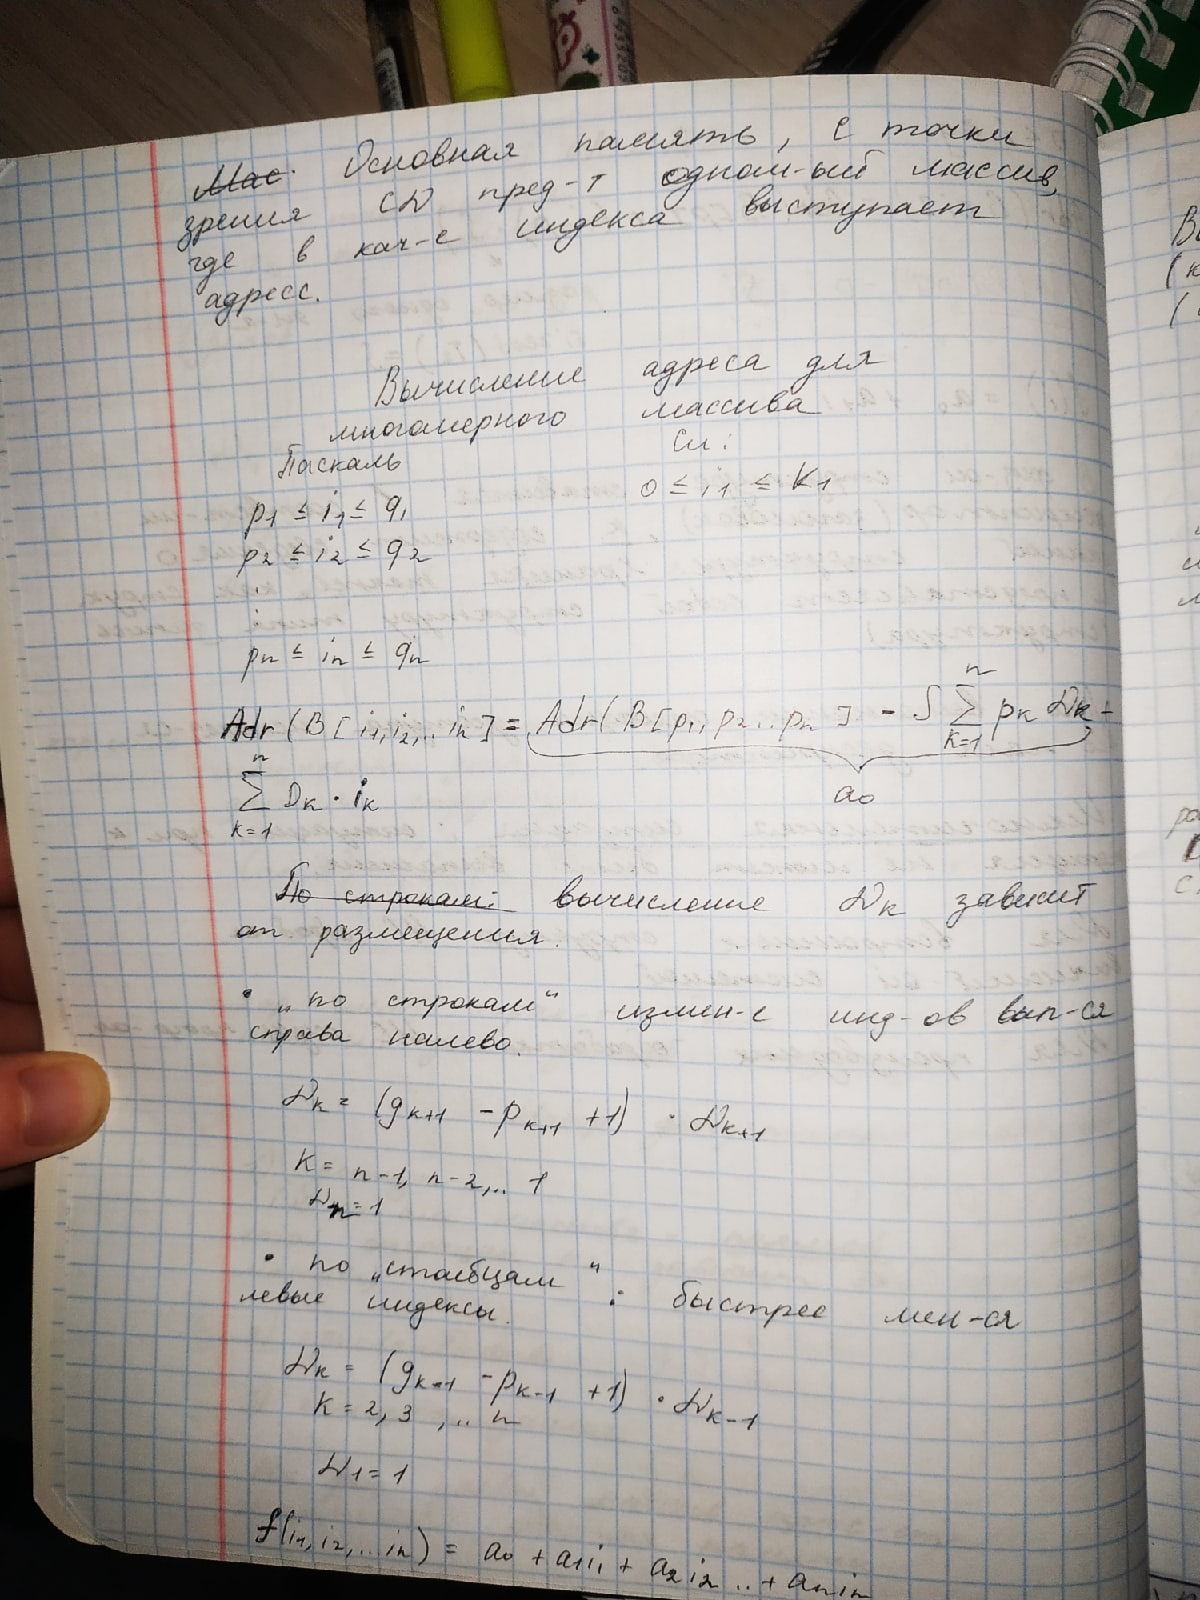 Основная память, с точки
зрения СД пред-т одном-ый массив,
где в кач-е индекса выступает
адресс.
Вычисление адреса для
многомерного массива
Паскаль Си:
p1 ≤ i1 ≤ q1 0 ≤ i1 ≤ K1
p2 ≤ i2 ≤ q2
⋮
pn ≤ in ≤ qn
Adr(B[i1,i2,..in] = Adr(B[p1,p2..pn] - S∑ pk Dk -
n
k=1
a0
n
∑ Dk · ik
k=1
По строкам: вычисление Dk зависит
от размещения.
• „по строкам“ измен-е инд-ов вып-ся
справа налево.
Dk = (qk+1 - pk+1 + 1) · Dk+1
K = n-1, n-2,.. 1
Dn = 1
• по „столбцам“: быстрее мен-ся
левые индексы.
Dk = (qk-1 - pk-1 + 1) · Dk-1
K = 2, 3, .. n
D1 = 1
f(i1, i2,..in) = a0 + a1i1 + a2i2 .. + anin